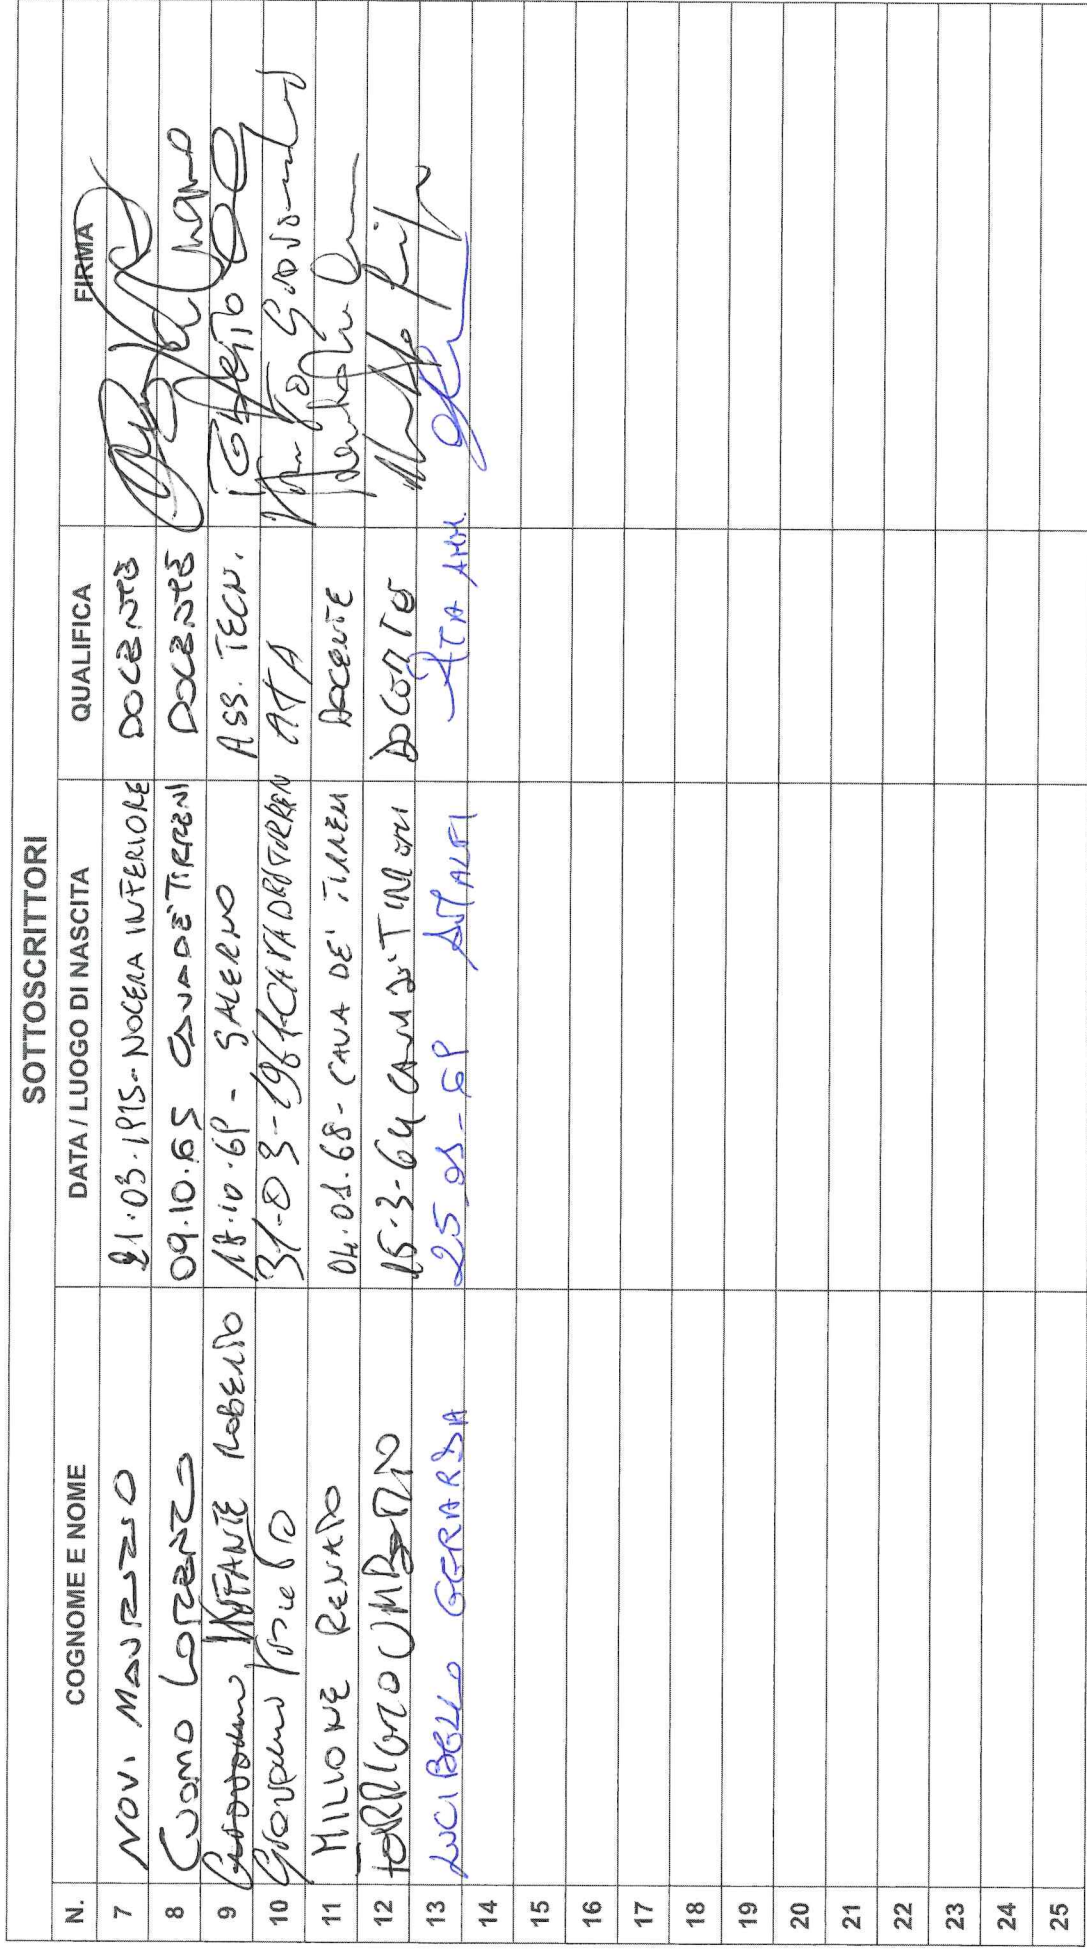 SOTTOSCRITTORI
N. COGNOME E NOME DATA / LUOGO DI NASCITA QUALIFICA FIRMA
7 NOVI MAURIZIO 21.03.1975-NOCERA INFERIORE DOCENTE
8 CUOMO LORENZO 09.10.65 CAVA DE' TIRRENI DOCENTE
9 INFANTE ROBERTO 18.10.69 - SALERNO ASS. TECN.
10 31-03-1961 CAVA ATA
11 MILIONE RENATO 04.01.68 - CAVA DE' TIRRENI DOCENTE
12 UMBERTO 15.3.64 DOCENTE
13 LUCIBELLO GERARDA 25.01-69 AMALFI ATA AMM.
14
15
16
17
18
19
20
21
22
23
24
25